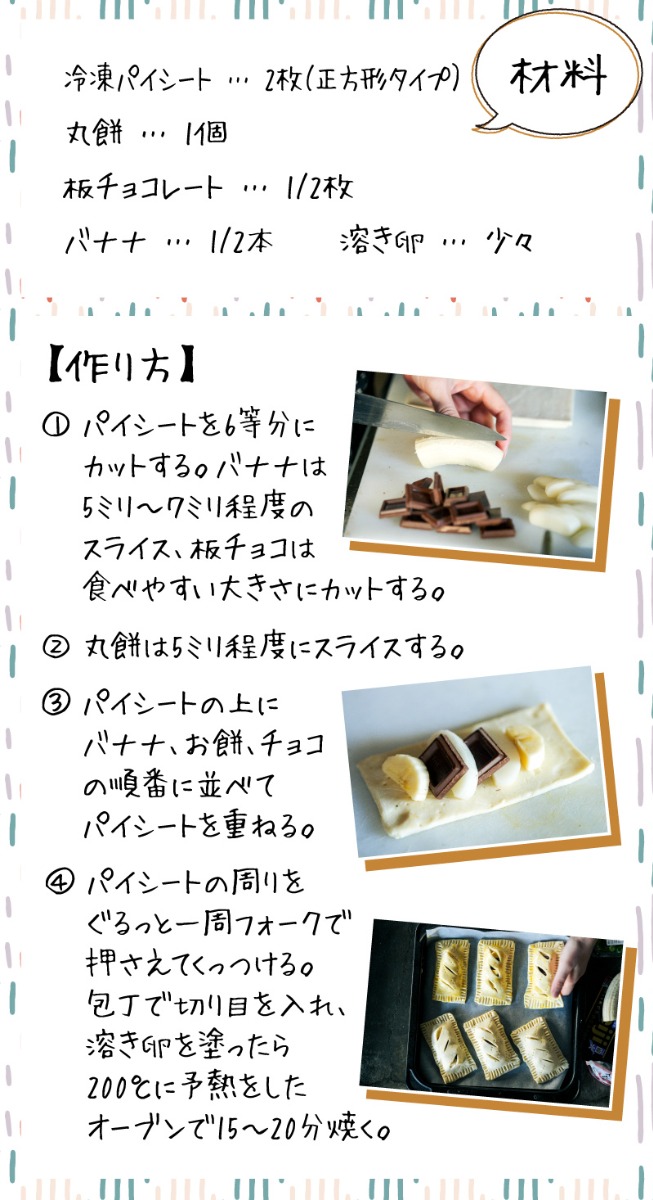 材料
冷凍パイシート … 2枚(正方形タイプ)
丸餅 … 1個
板チョコレート … 1/2枚
バナナ … 1/2本　溶き卵 … 少々
【作り方】
① パイシートを6等分に
カットする。バナナは
5ミリ〜7ミリ程度の
スライス、板チョコは
食べやすい大きさにカットする。
② 丸餅は5ミリ程度にスライスする。
③ パイシートの上に
バナナ、お餅、チョコ
の順番に並べて
パイシートを重ねる。
④ パイシートの周りを
ぐるっと一周フォークで
押さえてくっつける。
包丁で切り目を入れ、
溶き卵を塗ったら
200℃に予熱をした
オーブンで15〜20分焼く。